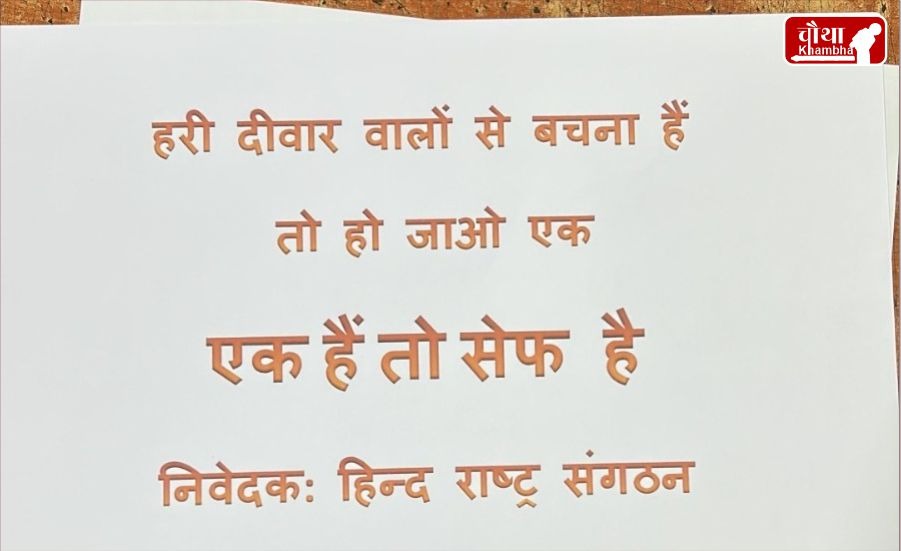 चौथा
Khambha
हरी दीवार वालों से बचना हैं
तो हो जाओ एक
एक हैं तो सेफ है
निवेदक: हिन्द राष्ट्र संगठन